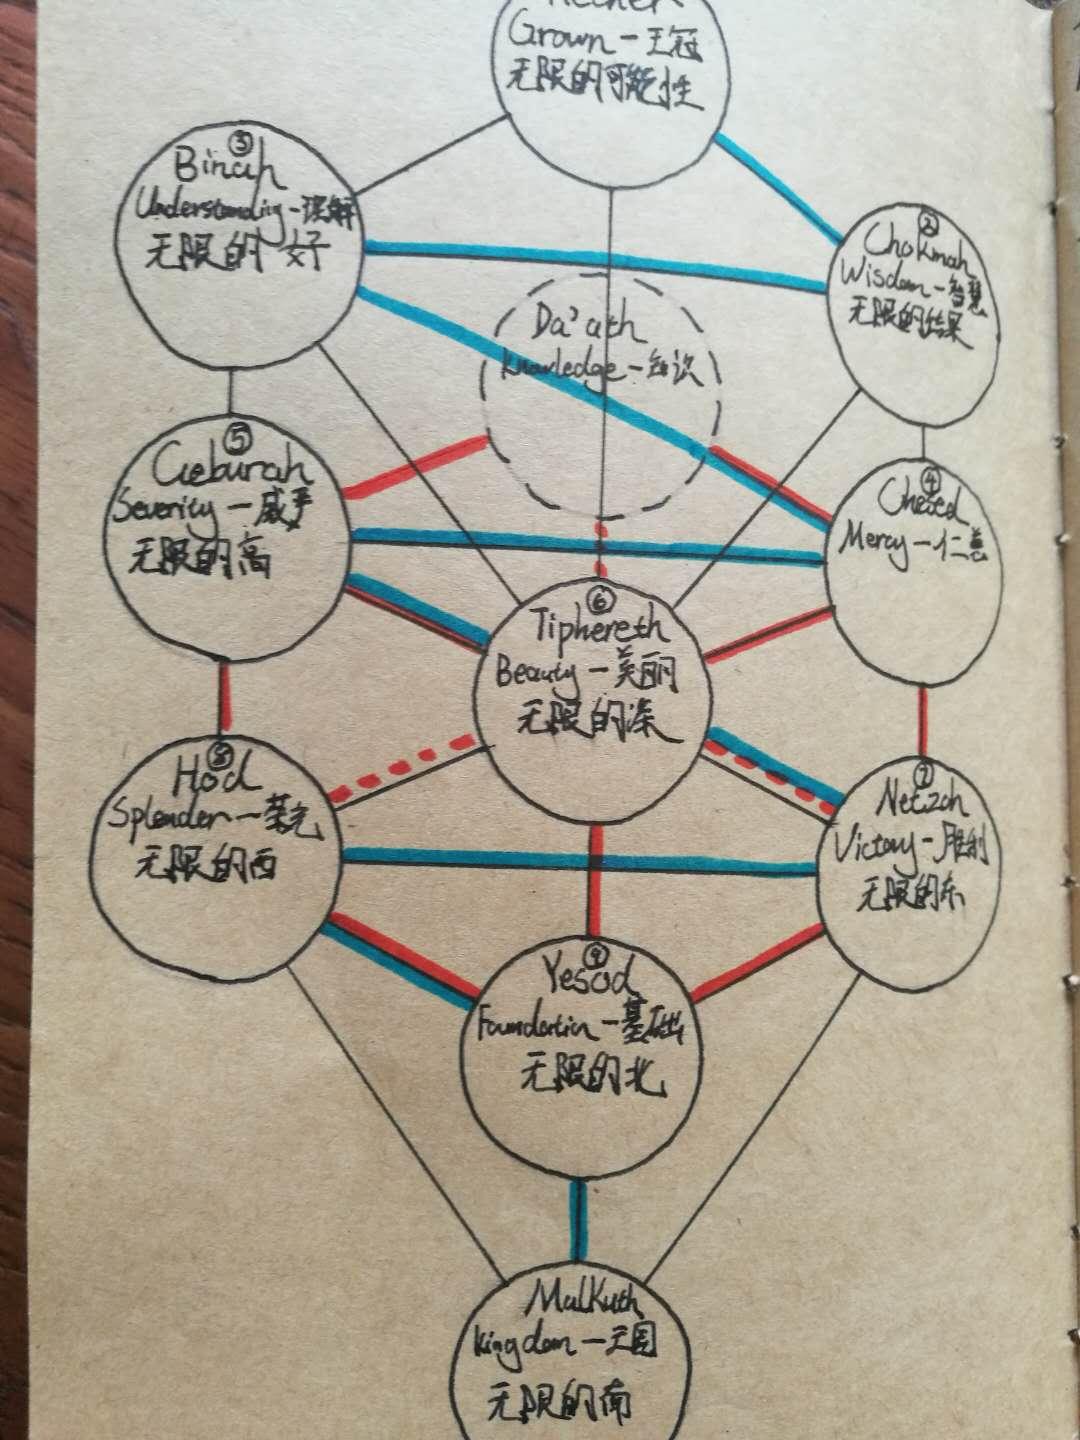 Kether
Crown－王冠
无限的可能性
③
Binah
Understanding－理解
无限的好
②
Chokmah
Wisdom－智慧
无限的结果
Da'ath
Knowledge－知识
⑤
Geburah
Severity－威严
无限的高
④
Chesed
Mercy－仁慈
⑥
Tiphereth
Beauty－美丽
无限的深
⑧
Hod
Splender－荣光
无限的西
⑦
Netzah
Victory－胜利
无限的东
⑨
Yesod
Foundation－基础
无限的北
Malkuth
Kingdom－王国
无限的南